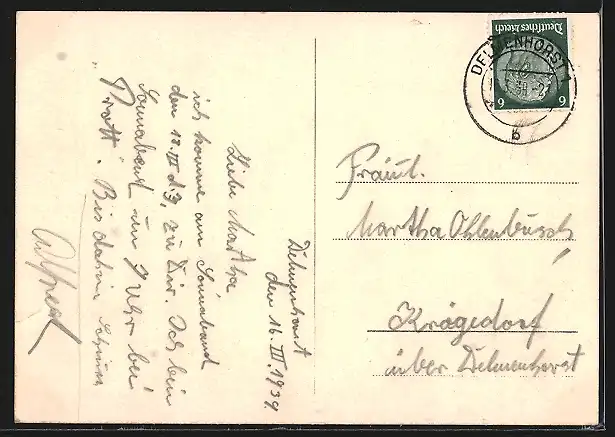 Delmenhorst
den 16.III.1939.
Liebe Martha
ich komme am Sonnabend
den 18.III d.J. zu Dir. Ich bin
Sonnabend um 9 Uhr bei
Trott. Bis dahin
Alfred
Deutsches Reich
6 6
DELMENHORST 1
b
Fräul.
Martha Ohlenbusch
Krögedorf
über Delmenhorst